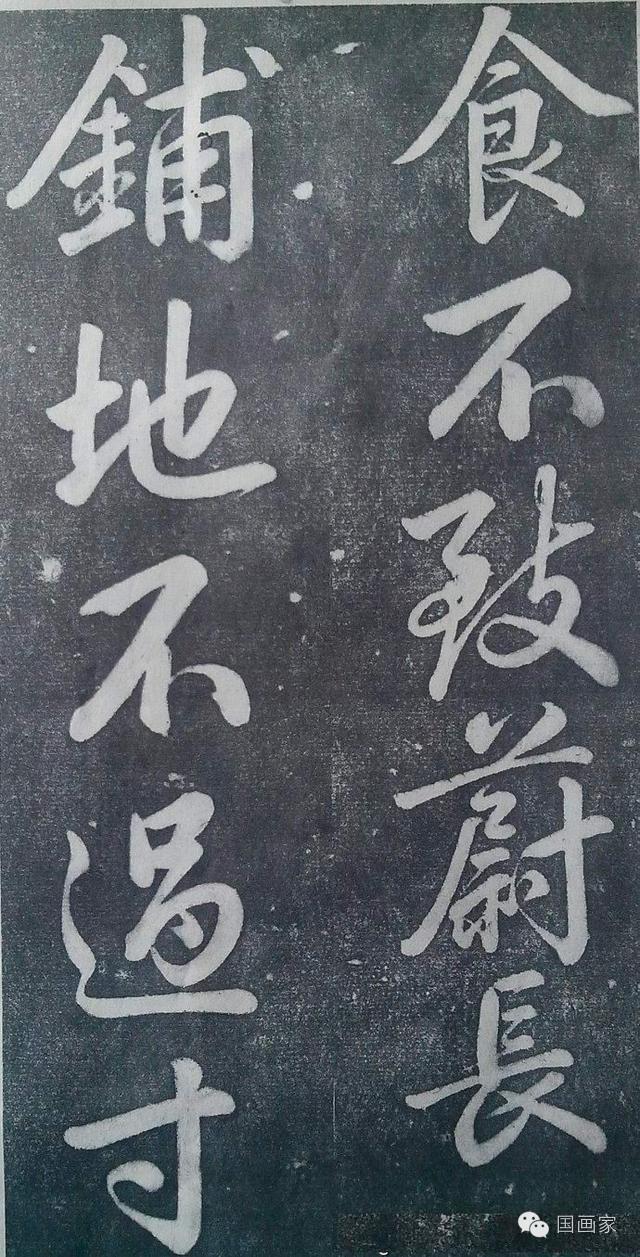 食不致蔚長
鋪地不過寸
国画家